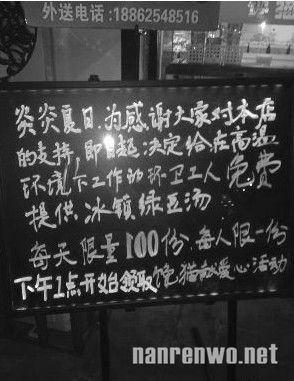 外送电话:18862548516
炎炎夏日,为感谢大家对本店
的支持,即日起,决定给在高温
环境下工作的环卫工人免费
提供冰镇绿豆汤
每天限量100份,每人限一份
下午1点开始领取 馋猫献爱心活动
nanrenwo.net